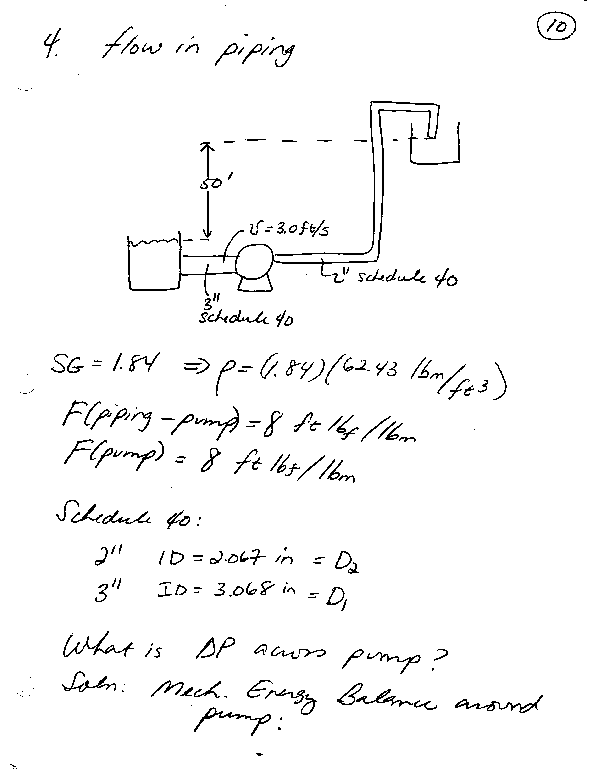 10
4. flow in piping
50'
v = 3.0 ft/s
2" schedule 40
3"
schedule 40
SG = 1.84 ⇒ ρ = (1.84)(62.43 lbm/ft3)
F(piping - pump) = 8 ft lbf/lbm
F(pump) = 8 ft lbf/lbm
Schedule 40:
2" ID = 2.067 in = D2
3" ID = 3.068 in = D1
What is ΔP across pump?
Soln: Mech. Energy Balance around
pump: